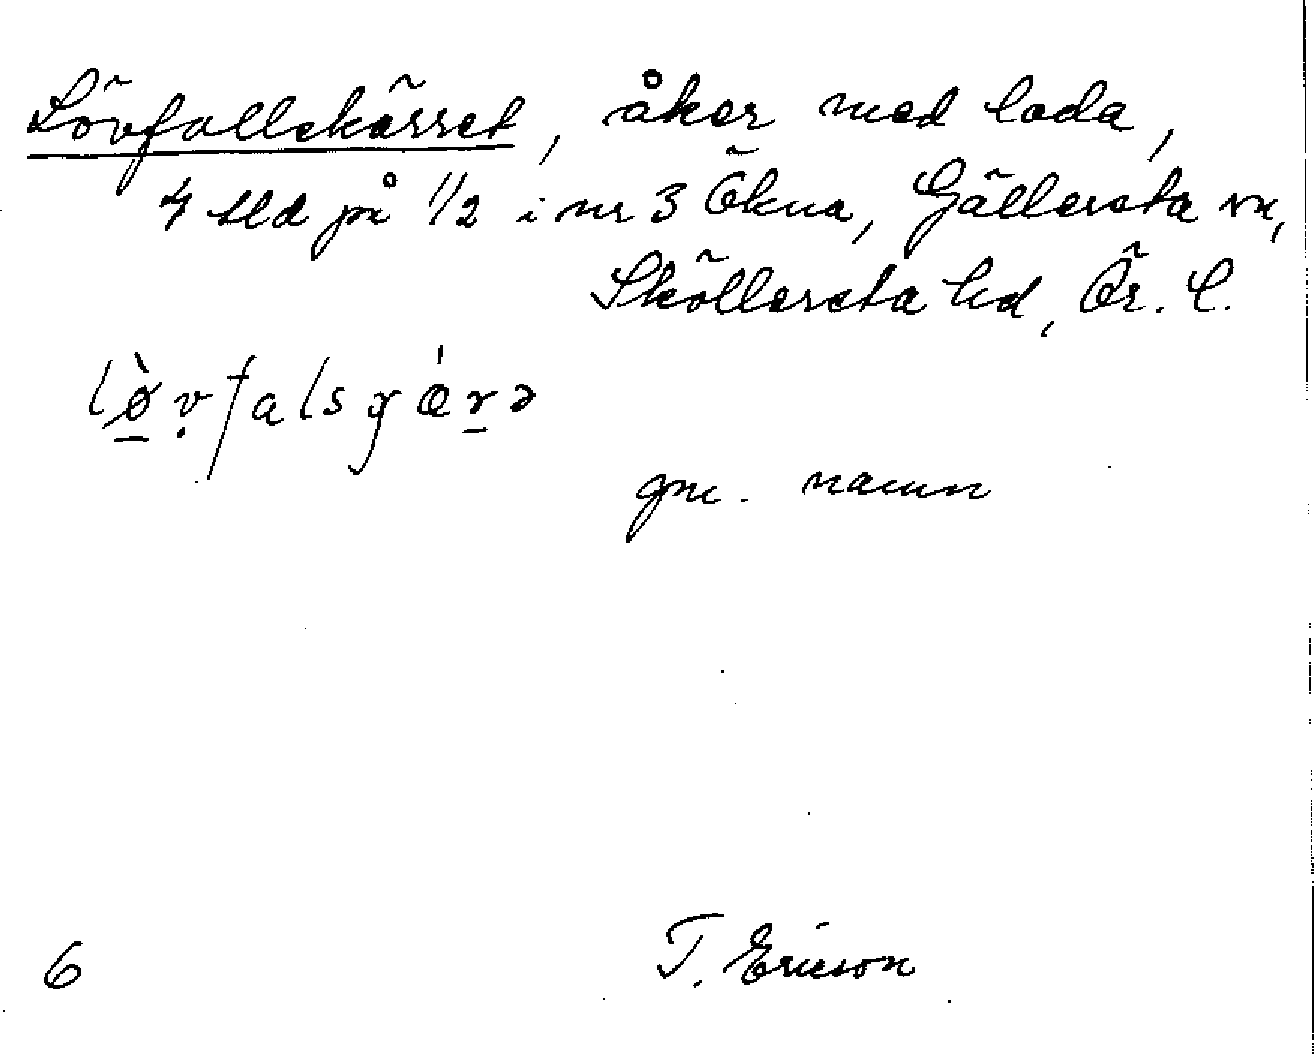 Lövfallskärret, åker med lada,
4 tld på 1/2 i nr 3 Ökna, Gällersta sn,
Sköllersta hd, Ör. l.
lø̀vfalsgǽrə
gm. namn
6 T. Ericson